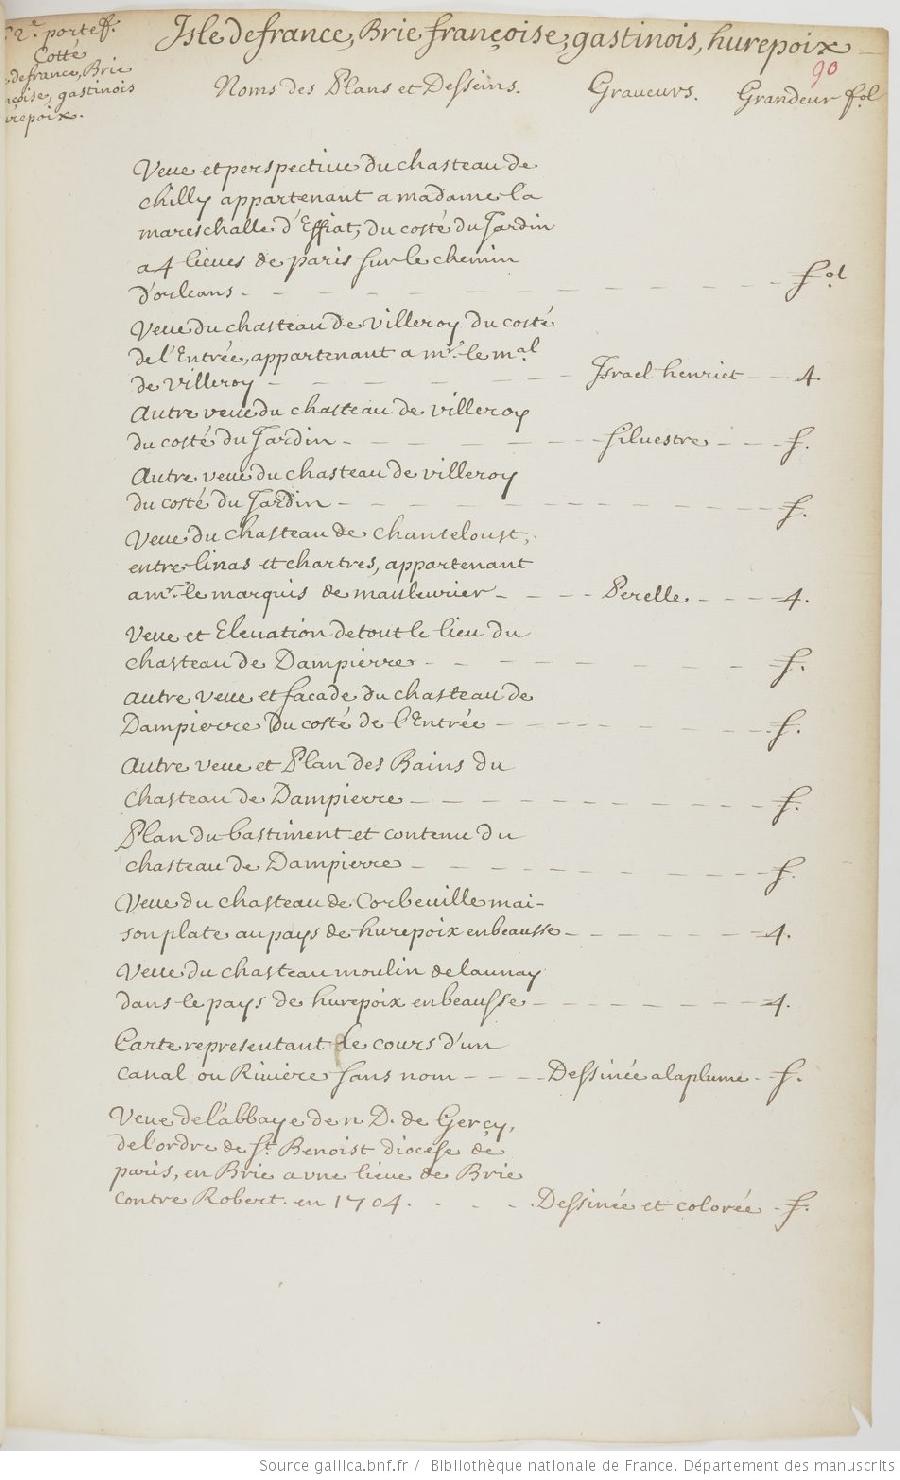 2.e portef.
Cotté
defrance, Brie
gastinois
Isle defrance, Brie françoise, gastinois, hurepoix
90
Noms des Plans et Desseins. Graveurs. Grandeur fol
Veue et perspective du chasteau de
chilly appartenant a madame la
mareschalle d'Effiat, du costé du Jardin
a 4 lieues de paris sur le chemin
d'orleans - - - - - f.ol
Veue du chasteau de villeroy du costé
de l'Entrée, appartenant a mr. le m.al
de villeroy - - - - - Israel henriet - - 4.
Autre veue du chasteau de villeroy
du costé du Jardin - - - - - silvestre - - - f.
Autre veue du chasteau de villeroy
du costé du Jardin - - - - - f.
Veue du chasteau de chanteloust,
entre linas et chartres, appartenant
a mr. le marquis de maulevrier - - - - Perelle. - - - 4.
Veue et Elevation de tout le lieu du
chasteau de Dampierre - - - - - f.
autre veue et facade du chasteau de
Dampierre du costé de l'Entrée - - - - - f.
Autre veue et Plan des Bains du
chasteau de Dampierre - - - - - f.
Plan du bastiment et contenu du
chasteau de Dampierre - - - - - f.
Veue du chasteau de Corbeuille mai-
son plate au pays de hurepoix en beausse - - - - - 4.
Veue du chasteau moulin de launay
dans le pays de hurepoix en beausse - - - - - 4.
Carte representant le cours d'un
canal ou Riviere sans nom - - - Dessinée a la plume - f.
Veue de l'abbaye de n. D. de Gercy,
de l'ordre de St. Benoist diocese de
paris, en Brie a une lieue de Brie
contre Robert. en 1704. - - - Dessinée et colorée - f.
Source gallica.bnf.fr / Bibliothèque nationale de France. Département des manuscrits